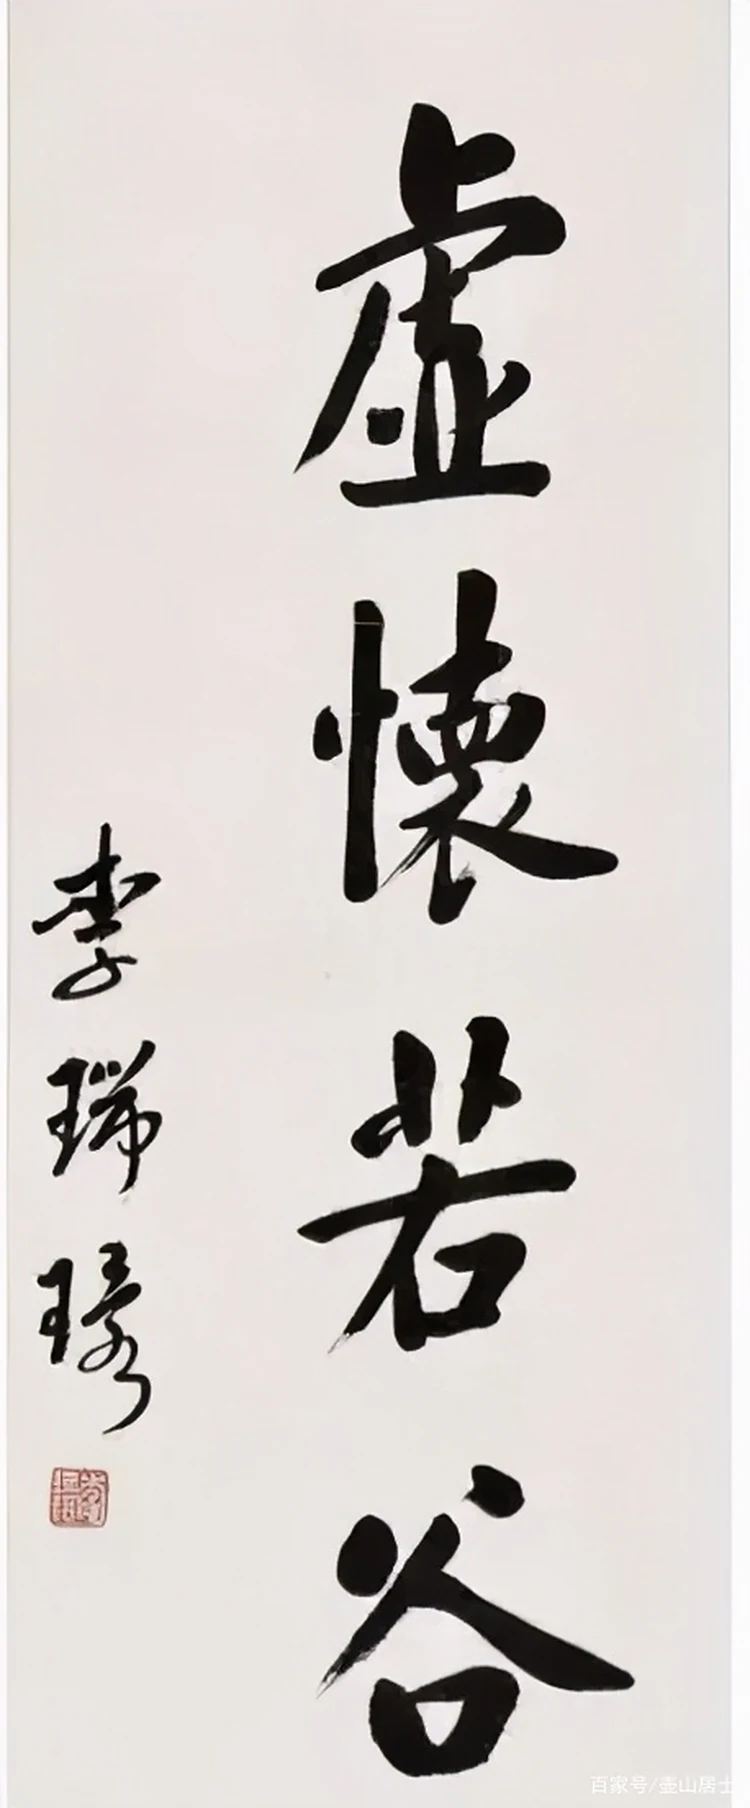 虛懷若谷
李瑞
百家号/壶山居士